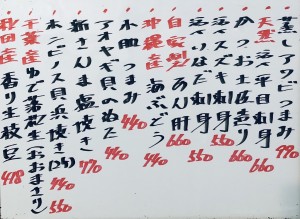 蒸しアワビつまみ 990
天然 活〆平目刺身 660
かつお土佐造り 660
活〆 刺身 550
活〆 刺身 550
自家製 あん肝 660
沖縄産 海ぶどう 440
小肌つまみ 440
アオヤギ貝のぬた 440
新さんま塩焼き 770
ホンビノス貝浜焼き(2ヶ) 440
千葉産 ゆで落花生(おおまさり) 550
秋田産 香り生枝豆 418